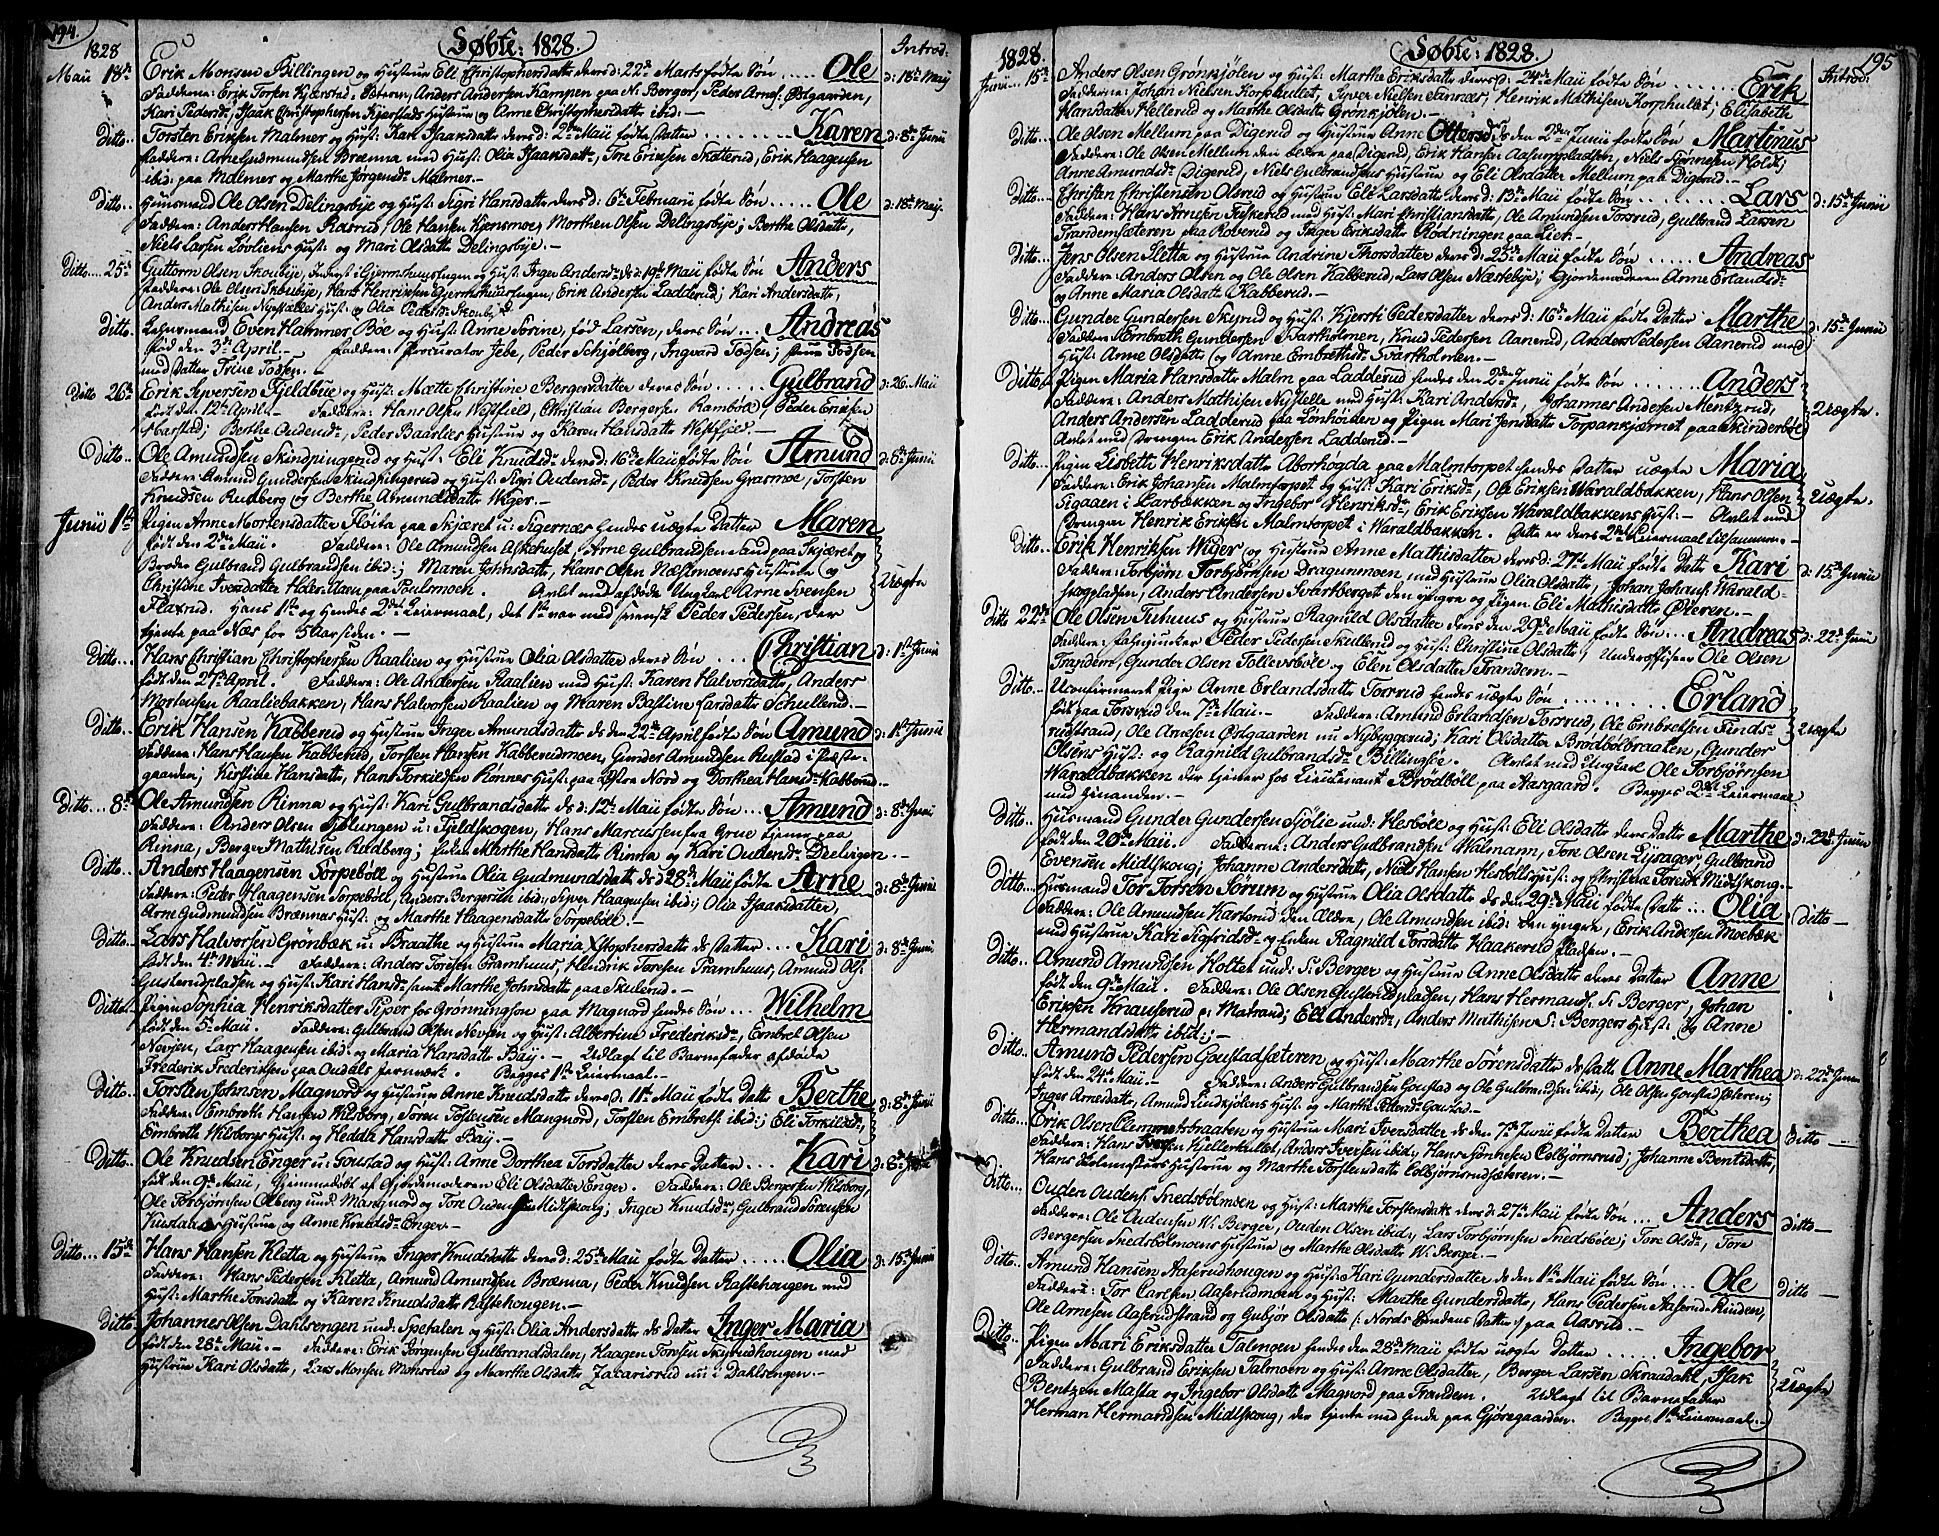 194.
Døbte: 1828.
1828
Introd:
Maii 18de Erik Monsen Billingen og Hustrue Eli Christophersdatter deres d: 22de Marts fødte Søn ..... Ole d: 18de Maij
Faddere: Erik Torsen Kjærstad, Anders Andersen Kampen paa N. Berger, Peder Arnes: Østgaarden,
Kari Pedersd:, Isaak Christophersen Kjerstads Hustrue og Anne Christophersdatter ibid:—
Ditto.. Torsten Eriksen Malmer og Hust: Kari Isaaksdatter deres d: 2den Maii fødte Datter ........ Karen d: 8de Junii
Faddere: Arne Gudmundsen Brænna med Hust: Olia Isaaksdatter, Tore Eriksen Skatterud, Erik Haagensen
ibid: paa Malmer og Marthe Jørgensdr Malmer.—
Ditto Huusmand Ole Olsen Delingsbye og Hustrue Sigri Hansdatter deres d: 6te Februarii fødte Søn ..... Ole d: 18de Maij.
Faddere: Anders Hansen Rastad, Ole Hansen Kjensmoe, Morthen Olsen Delingsbye; Berthe Olsdatter,
Niels Larsen Lørliens Hust: og Mari Olsdatter Delingsbye.—
Ditto.... 25de Guttorm Olsen Skoubye, Inderst i Gjermshuushagen og Hust: Inger Andersdr d: 19de Maii fødte Søn Anders
Faddere: Ole Olsen Skoubye, Hans Henriksen Gjermshuushagen, Erik Andersen Ladderud; Kari Andersdatter,
Anders Mathisen Nystelles Hust: og Olia Pedersdr Skoubye
Ditto. Lehnsmand Even Hammer Boe og Hust: Anne Sorine, fød Larsen, deres Søn ... Andreas
fød den 3die April.— Faddere: Procurator Jebe, Peder Schjølberg, Ingvard Todsen; Frue Todsen
med Datter Trine Todsen.—
Ditto 26de Erik Syversen Fjeldbøe og Hust: Mætte Christine Bergersdatter deres Søn ..... Gulbrand d: 26. Maii
født den 12te April.— Faddere: Hans Olsen Westfield, Christian Bergersen Rambøl, Peder Eriksen
Harstad; Berthe Oudensdr, Peder Baarlies Hustrue og Karen Hansdatter Westfield.—
Ditto.. Ole Amundsen Skindpingerud og Hust: Eli Knudsdr deres d: 16de Maii fødte Søn Amund d: 8de Junii
Faddere: Amund Gundersen Skindpingerud og Hust: Sigri Oudensdr, Peder Knudsen Grasmoe, Torsten
Knudsen Rudberg og Berthe Amundsdatter Wiger.—
Junii 1ste Pigen Anne Mortensdatter Fløita paa Skjæret u: Sigernæs hendes uægte Datter ..... Maren
født den 2den Maii. Faddere: Ole Amundsen Askehuset, Arne Gulbrandsen Sand paa Skjæret og
Broder Gulbrand Gulbrandsen ibid:; Maren Johnsdatter, Hans Olsen Næstmoens Hustrue og
Christine Iversdatter Hedermarn paa Poulsmoen. Avlet med afdøde Ungkarl Arne Svensen Uægte
Flaxrud. Hans 1ste og hendes 2det Leiermaal, det 1ste var med svensk Peder Pedersen, der
tjente paa Næs for 5 Aar siden.—
Ditto... Hans Christian Christophersen Raalien og Hustrue Olia Olsdatter deres Søn ... Christian d: 1ste Junii
født den 21de April. Faddere: Ole Andersen Raalien med Hust: Karen Halvorsdatter, Anders
Mortensen Raaliebakken, Hans Halvorsen Raalien og Maren Bastine Larsdatter Schullerud.—
Ditto.. Erik Hansen Kabberud og Hustrue Inger Amundsdatter ds den 22de April fødte Søn Amund d: 1ste Junii
Faddere: Hans Hansen Kabberud, Torsten Hansen Kabberudmoen, Gunder Amundsen Rustad i Præste-
gaarden; Kirstine Hansdatter, Hans Torkildsen Rønnes Hust: paa Østre Nord og Dorthea Hansdr Kabberud.—
Ditto... 8de Ole Amundsen Rinna og Hust: Kari Gulbrandsdatter ds d: 12te Maii fødte Søn ... Amund d: 8de Junii
Faddere: Anders Olsen Fjølungen u: Fjeldskogen, Hans Marcussen fra Grue tjener paa
Rinna, Berger Mathisen Rudberg; Enken Marthe Hansdatter Rinna og Kari Oudensdr Brelingen.—
Ditto Anders Haagensen Torpebøll og Hustrue Olia Gudmundsdatter ds d: 28de Maii fødte Arne d: 8de Junii
Faddere: Peder Haagensen Torpebøl, Anders Bergersen ibid:, Syver Haagensen ibid:; Olia Isaaksdatter,
Arne Gudmundsen Brænnes Hust: og Marthe Haagensdatter Torpebøll.—
Ditto. Lars Halvorsen Grønbæk u: Braathe og Hustrue Maria Xstophersdatter ds Datter ... Kari d: 8de Junii
født den 4de Maii.— Faddere: Anders Toresen Pramhuus, Hendrik Toresen Pramhuus, Amund Ols:
Gusterudpladsen og Hust: Kari Hansdr samt Marthe Johnsdatter paa Skulerud.—
Ditto. Pigen Sophia Henriksdatter Piper fra Grønningfos paa Magnord hendes Søn ..... Wilhelm
født den 5te Maii. Faddere: Gulbrand Olsen Nevsen og Hust: Albertine Frederiksdr, Embret Olsen
Nevsen, Lars Haagensen ibid: og Maria Hansdatter Bay.— Udlagt til Barnefader afdøde
Frederik Frederiksen paa Oudals Jernværk. Begges 1ste Leiermaal.—
Ditto.. Torsten Johnsen Magnord og Hustrue Anne Knudsdatter deres d: 11te Maii fødte Datter Berthe d: 8de Junii
Faddere: Embreth Hansen Wilsborg, Soren Torstensen Mangnord, Torsten Embrets: ibid:; Eli Torkildsdr,
Embreth Wilsborgs Hust: og Hedda Hansdatter Bay.—
Ditto.. Ole Knudsen Enger u: Goustad og Hust: Anne Dorthea Torsdatter deres Datter ... Kari d: 8de Junii
født den 9de Maii, hjemmedøbt af Gjordemoderen Eli Olsdatter Enger. Faddere: Ole Bergersen Wilsborg,
Ole Torbjørnsen Oeberg und: Mangnord og Tore Oudensen Midtskoug; Inger Knudsdr, Gulbrand Sorensen
Hustrue og Anne Knudsdr Enger.—
Ditto... 15de Hans Hansen Kletta og Hustrue Inger Knudsdatter deres d: 25de Maii fødte Datter ..... Olia d: 15de Junii
Faddere: Hans Pedersen Kletta, Amund Amundsen Brænna, Peder Knudsen Rastehougen med
Hust: Marthe Toresdatter og Karen Knudsdatter Rastehougen.—
Ditto. Johannes Olsen Dahlsengen und: Spetalen og Hust: Olia Andersdatter ds Datter Inger Maria
født den 28de Maii.— Faddere: Erik Jørgensen Gulbrandsdalen, Haagen Torsen Skyrudhougen med
Hustrue Kari Olsdatter, Lars Monsen Mohsrud og Marthe Olsdatter Zacarisrud nu i Dahlsengen.—
195
Døbte: 1828.
1828.
Introd:
Junii ... 15de Anders Olsen Grønkjølen og Hust: Marthe Eriksdatter deres d: 24de Maii fødte Søn ..... Erik
Faddere: Johan Nielsen Korphullet, Syver Nielsen Tannæs, Henrik Mathisen Korphullet; Elisabeth
Hansdatter Hellerud og Marthe Olsdatter Grønkjølen.—
Ditto.. Ole Olsen Mellum paa Digerud og Hustrue Anne Ottersdr ds den 2den Junii fødte Søn Martinus
Faddere: Ole Olsen Mellum den ældre paa Digerud, Erik Hansen Aasumpladsen, Niels Hønnesen Holdt;
Anne Amundsdr Digerud, Niels Gulbrandsens Hustrue og Eli Olsdatter Mellum paa Digerud.—
Ditto.. Christen Christensen Olsrud og Hustrue Eli Larsdatter deres d: 13de Maii fødte Søn ........ Lars d: 15de Junii
Faddere: Hans Arnesen Fiskerud med Hust: Mari Christiansdatter, Ole Amundsen Torsrud, Gulbrand Larsen
Trandemsæteren paa Roverud og Inger Eriksdatter Rødningen paa Lien.—
Ditto.. Jens Olsen Sletta og Hustrue Andrine Thorsdatter deres d: 25de Maii fødte Søn ..... Andreas
Faddere: Anders Olsen og Ole Olsen Kabberud, Lars Olsen Næstebye; Gjordemoderen Anne Erlandsdr
og Anne Maria Olsdatter Kabberud.—
Ditto.. Gunder Gundersen Skyrud og Hust: Kjersti Pedersdatter deres d: 16de Maii fødte Datter Marthe d: 15de Junii
Faddere: Embreth Gundersen Svartholmen, Knud Pedersen Aanerud, Anders Pedersen Aanerud med
Hust: Anne Olsdatter og Anne Embrethsdr Svartholmen.—
Ditto. Pigen Maria Hansdatter Malm paa Ladderud hendes den 2den Junii fødte Søn ........ Anders
Faddere: Anders Mathisen Nystelle med Hust: Kari Andersdr, Johannes Andersen Mentzrud,
Anders Andersen Ladderud paa Lønhøiden og Pigen Mari Jensdatter Torpankjærnet paa Skinderbøl Uægte.
Avlet med Drengen Erik Andersen Ladderud.—
Ditto.. Pigen Lisbeth Henriksdatter Aborhøgda paa Malmtorpet hendes Datter uægte Maria
Faddere: Erik Johansen Malmtorpet og Hust: Kari Eriksdr, Ole Eriksen Waraldbakken, Hans Olsen
Sigaaen i Larbækken og Ingebor Henriksdr, Erik Eriksen Waraldbakkens Hust:— Avlet med Uægte.
Drengen Henrik Eriksen Malmtorpet i Waraldbakken. Dette er deres 2det Leiermaal tilsammen.—
Ditto.. Erik Henriksen Wiger og Hustrue Anne Mathisdatter deres d: 27de Maii fødte Datter Kari d: 15de Junii
Faddere: Torbjørn Torbjørnsen Dragunmoen med Hustrue Olia Olsdatter, Johan Johans: Warald-
skogpladsen, Anders Andersen Svartberget den yngre og Pigen Eli Mathisdatter Øieren.—
Ditto 22de Ole Olsen Tuhuus og Hustrue Ragnild Olsdatter deres den 29de Maii fødte Søn: ... Andreas d: 22de Junii
Faddere: Fahnjunker Peder Pedersen Skullerud og Hust: Christine Olsdatter, Underofficeer Ole Olsen
Trandem, Gunder Olsen Tollevsbøle og Elen Olsdatter Trandem.—
Ditto... Uconfirmeret Pige Anne Erlandsdatter Torsrud hendes uægte Søn .......... Erland
født paa Torsrud den 7de Maii.— Faddere: Amund Erlandsen Torsrud, Ole Embretsen Finds-
rudstrand, Ole Arnesen Østgaarden nu Nybyggerud; Kari Olsdatter Brødbølbraaten, Gunder Uægte
Olsens Hust: og Ragnild Gulbrandsdr Billingsøe. Avlet med Ungkarl Ole Torbjørnsen
Waraldbakken der tjener for Lieutenant Brødbøll paa Aasgaard. Begges 2det Leiermaal
med hinanden.—
Ditto.. Husmand Gunder Gundersen Sjølie und: Hesbøle og Hust: Eli Olsdatter deres Datter Marthe d: 22de Junii
født den 20de Maii. Fadderne: Anders Gulbrandsen Walmann, Tore Olsen Lysager, Gulbrand
Evensen Midtskoug; Johanne Andersdatter, Niels Hansen Hesbøls Hust: og Christine Toresdr Midtskoug.—
Ditto Husmand Tor Torsen Torum og Hustrue Olia Olsdatter ds den 29de Maii fødte Datter ... Olia Ditto—
Faddere: Ole Amundsen Karterud den Ældre, Ole Amundsen ibid: den yngre, Erik Andersen Moebæk
med Hustrue Kari Sigfridsdr og Enken Ragnild Torsdatter Haakerud Pladsen.—
Ditto.. Amund Amundsen Holtet und: S: Berger og Hustrue Anne Olsdatter deres Datter Anne
født den 9de Maii. Faddere: Ole Olsen Gusterudpladsen, Hans Hermands: S: Berger, Johan
Eriksen Knauserud p: Matrand; Eli Andersdr, Anders Mathisen S: Bergers Hust: og Anne
Hermandsdatter ibid:;—
Ditto.. Amund Pedersen Goustadsæteren og Hust: Marthe Sörensdatter ds Datter Anne Marthea d: 22de Junii
født den 24de Maii.— Faddere: Anders Gulbrandsen Goustad og Ole Gulbrandsen ibid:, Ole Olsen Goustadsæteren;
Inger Arnesdatter, Amund Lindkjølens Hust: og Marthe Pedersdr Goustad.—
Ditto... Erik Olsen Clemmetsbraaten og Hustrue Mari Iversdatter ds den 7de Junii fødte Datter Berthea Ditto—
Faddere: Hans Iversen Kjellerhullet, Anders Iversen ibid:, Hans Hønhesen Colbjørnsrud; Johanne Bentsdatter,
Hans Holmesturs Hustrue og Marthe Torstensdatter Colbjørnsrudsæteren.—
Ditto... Ouden Oudens: Snedsbølmoen og Hust: Marthe Torstensdatter ds d: 27de Maii fødte Søn ... Anders Ditto—
Faddere: Ole Oudensen W: Berger, Ouden Olsen ibid:, Lars Torbjørnsen Snedsbøle; Tore Olsdr, Tore
Bergersen Snedsbølmoens Hustrue og Marthe Olsdatter W. Berger.—
Ditto. Amund Hansen Aaserudhougen og Hust: Kari Gundersdatter ds den 1ste Maii fødte Søn ... Ole Ditto—
Faddere: Tor Carlsen Aaserudmoen og Hust: Marthe Gundersdatter, Hans Pedersen Aaserud-Ruuden,
Ole Arnesen Aaserudstrand og Gubjør Olsdatter /: Nords Enkens Datter :/ paa Aasrud.—
Ditto.. Pigen Mari Eriksdatter Talmoen hendes den 28de Maii fødte uægte Datter ...... Ingebor
Faddere: Gulbrand Eriksen Talmoen og Hust: Anne Olsdatter, Berger Larsen Skraadahl, Isak
Bentzen Masta og Ingebor Olsdatter Magnord paa Trandem. Udlagt til Barnefader Uægte
Herman Hermandsen Midtskoug, der tjente med hende paa Gjøsegaarden. Begges 1ste Leiermaal.—